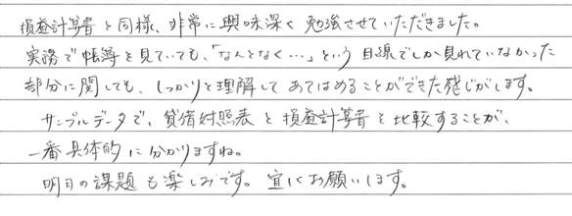 損益計算書と同様、非常に興味深く勉強させていただきました。
実務で帳簿を見ていても、「なんとなく…」という目線でしか見れていなかった
部分に関しても、しっかりと理解してあてはめることができた感じがします。
サンプルデータで、貸借対照表と損益計算書を比較することが、
一番具体的に分かりますね。
明日の課題も楽しみです。宜しくお願いします。